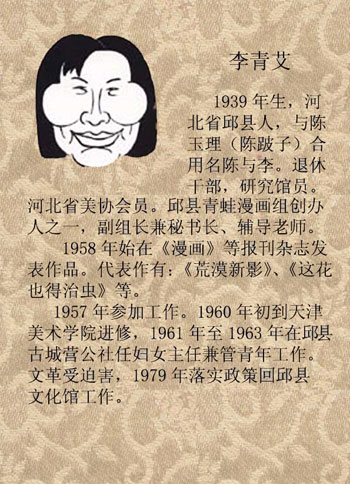 李青艾
1939 年生，河
北省邱县人，与陈
玉理（陈跛子）合
用名陈与李。退休
干部，研究馆员。
河北省美协会员。邱县青蛙漫画组创办
人之一，副组长兼秘书长、辅导老师。
1958 年始在《漫画》等报刊杂志发
表作品。代表作有：《荒漠新影》、《这花
也得治虫》等。
1957 年参加工作。1960 年初到天津
美术学院进修，1961 年至 1963 年在邱县
古城营公社任妇女主任兼管青年工作。
文革受迫害，1979 年落实政策回邱县
文化馆工作。